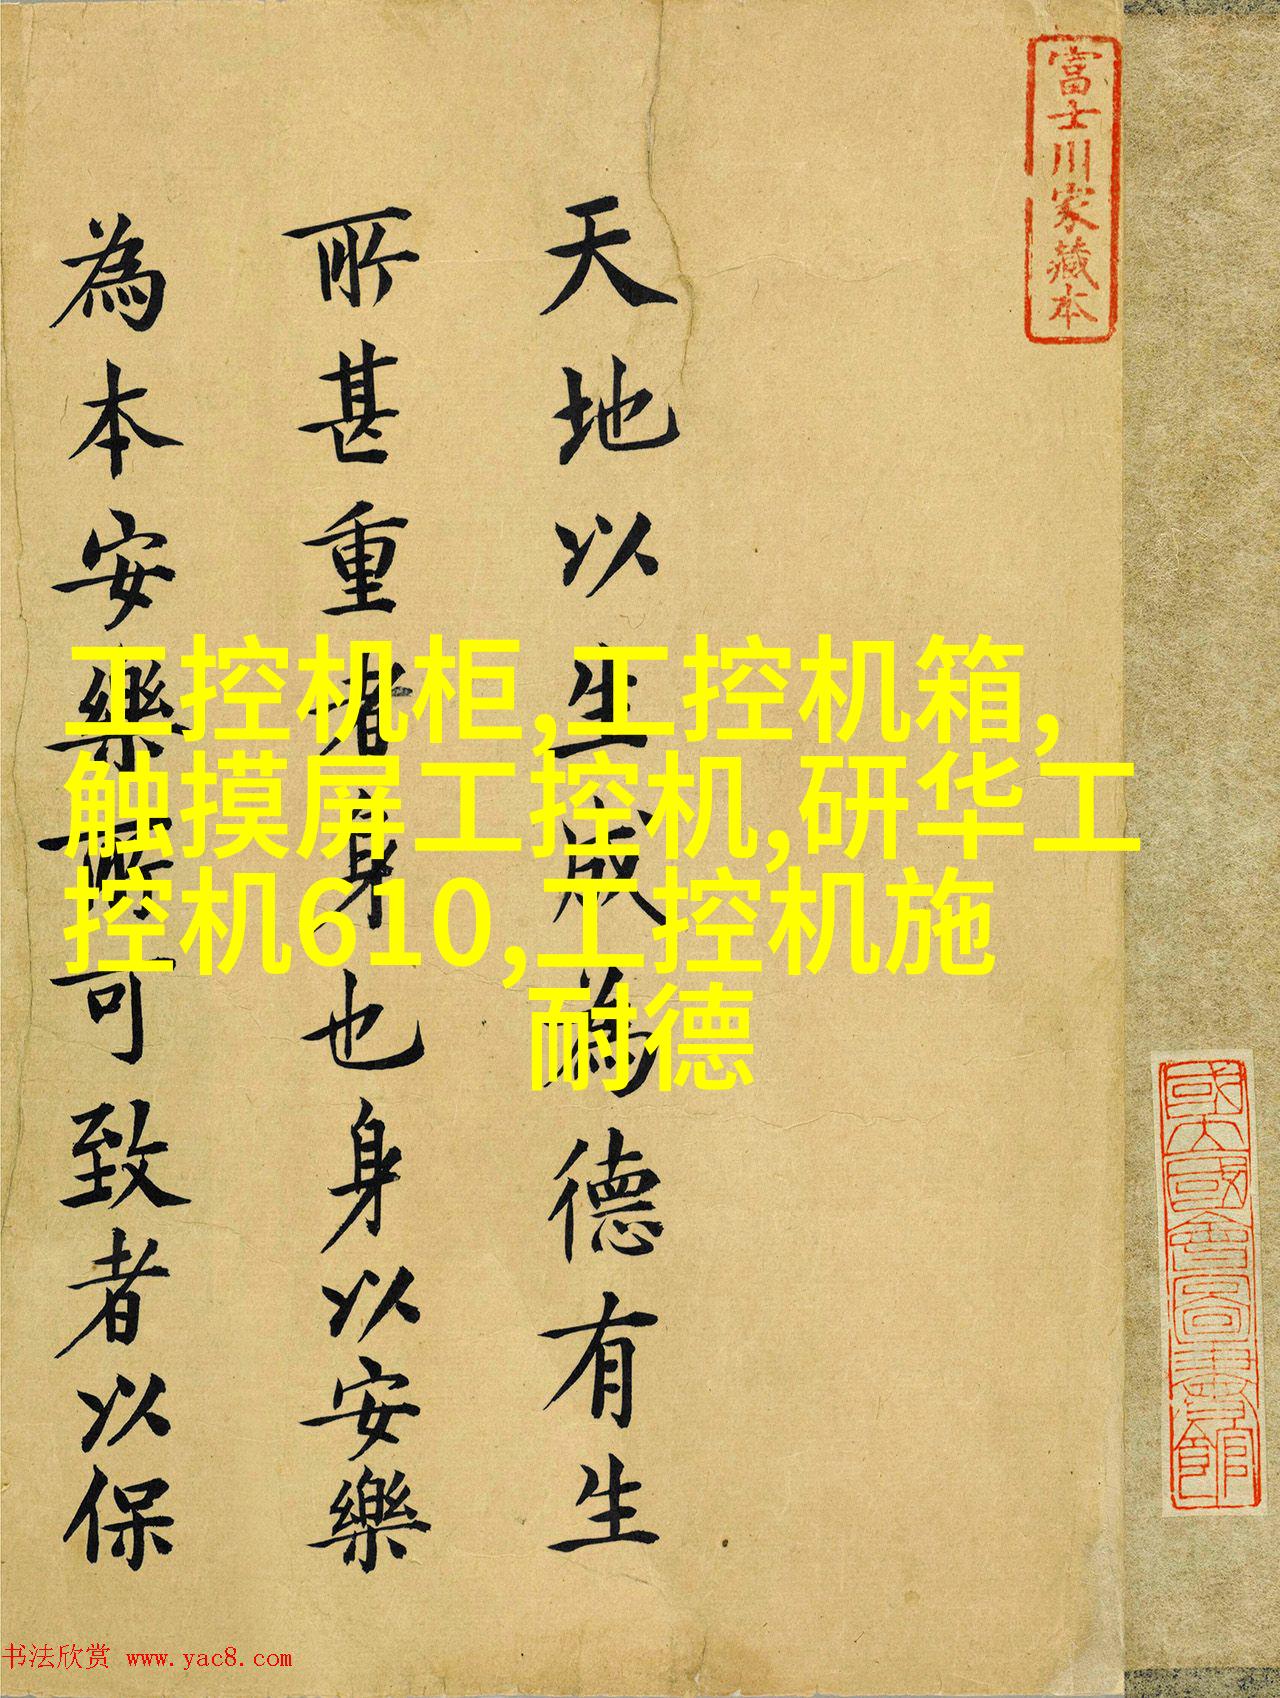 富士川家藏本
天地以生成為德有生
所甚重者身也身以安樂
為本安樂所可致者以保
工控机柜,工控机箱,
触摸屏工控机,研华工
控机610,工控机施
耐德
国立国會圖書館
书法欣赏 www.yac8.com